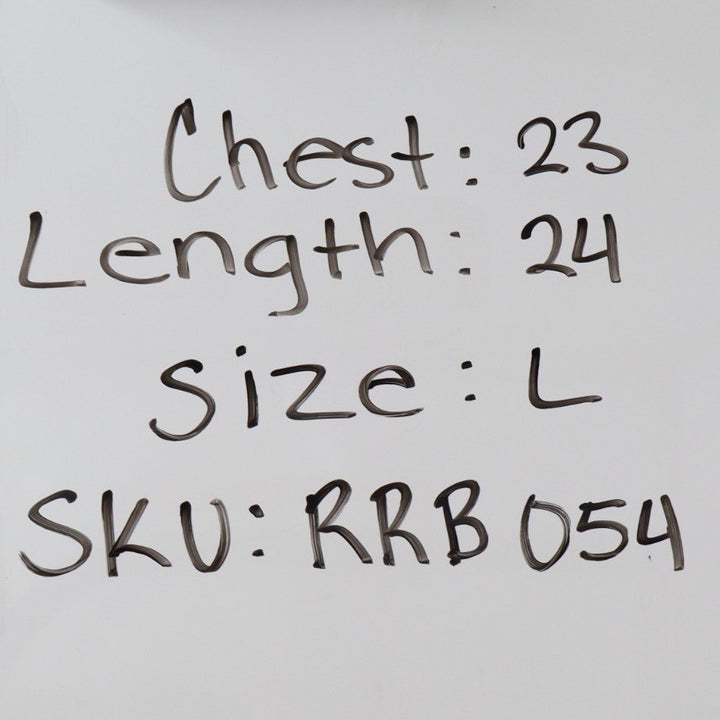 Chest: 23
Length: 24
Size: L
SKU: RRB 054